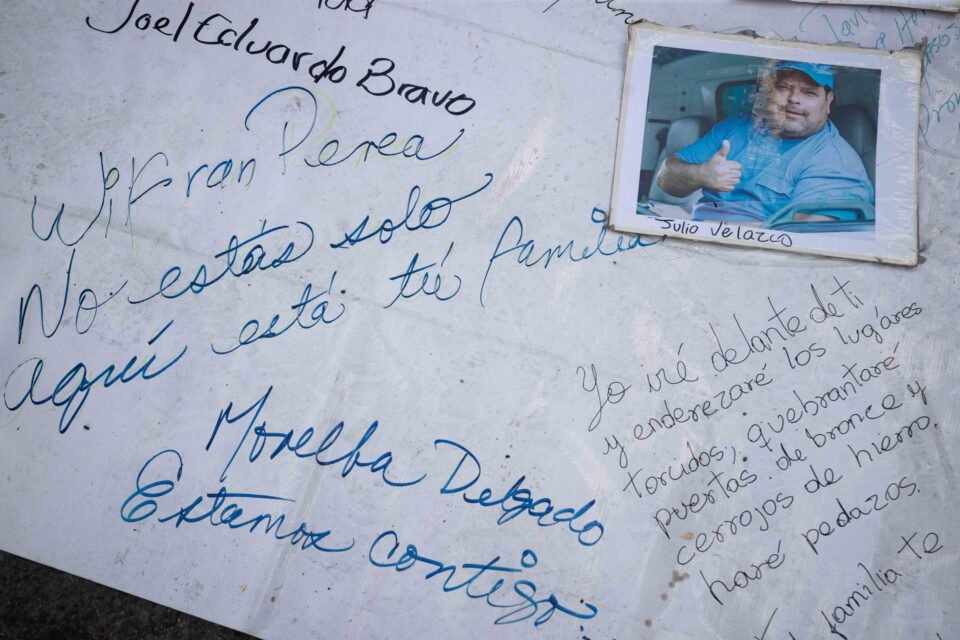 Joel Eduardo Bravo
Wilfran Perea
No estás solo
aquí está tú familia
Morelba Delgado
Estamos contigo
Julio Velazco
Yo iré delante de ti
y enderezaré los lugáres
torcidos, quebrantaré
puertas de bronce y
cerrojos de hierro.
haré pedazos.
familia te